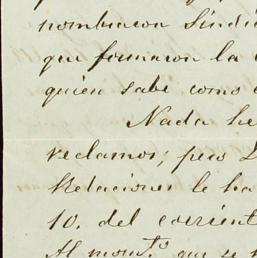 nombraron Síndi
que formaron la
quien sabe como
Nada he
reclamos; pero
Relaciones le ha
10. del corrient
Al mom.to que se